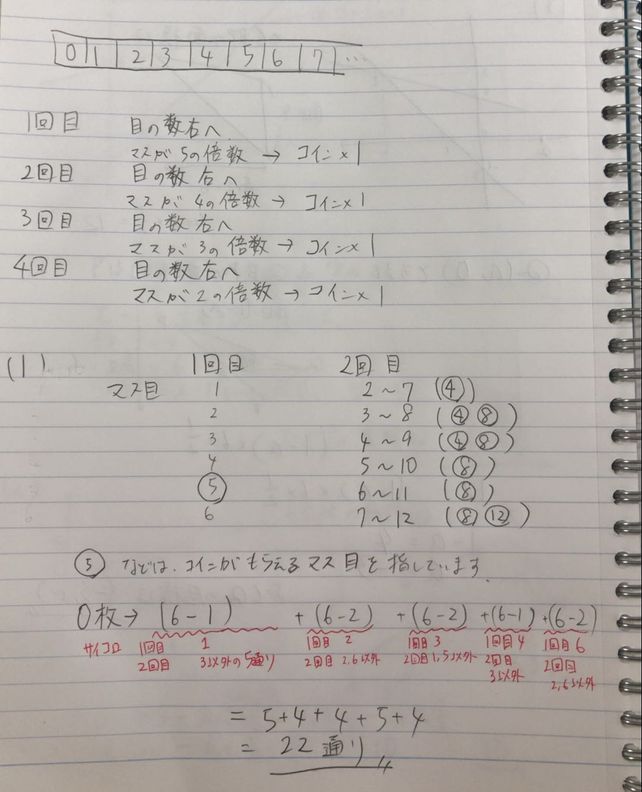 0 1 2 3 4 5 6 7 …
1回目 目の数右へ
マスが5の倍数 → コイン×1
2回目 目の数右へ
マスが4の倍数 → コイン×1
3回目 目の数右へ
マスが3の倍数 → コイン×1
4回目 目の数右へ
マスが2の倍数 → コイン×1
(1) 1回目 2回目
マス目 1 2～7 (④)
2 3～8 (④ ⑧)
3 4～9 (④ ⑧)
4 5～10 (⑧)
⑤ 6～11 (⑧)
6 7～12 (⑧ ⑫)
⑤ などは、コインがもらえるマス目を指しています。
0枚→ (6-1) + (6-2) + (6-2) + (6-1) + (6-2)
サイコロ 1回目 1 1回目 2 1回目 3 1回目 4 1回目 6
2回目 3以外の5通り 2回目 2,6以外 2回目 1,5以外 2回目 3以外 2回目 2,6以外
= 5+4+4+5+4
= 22通り